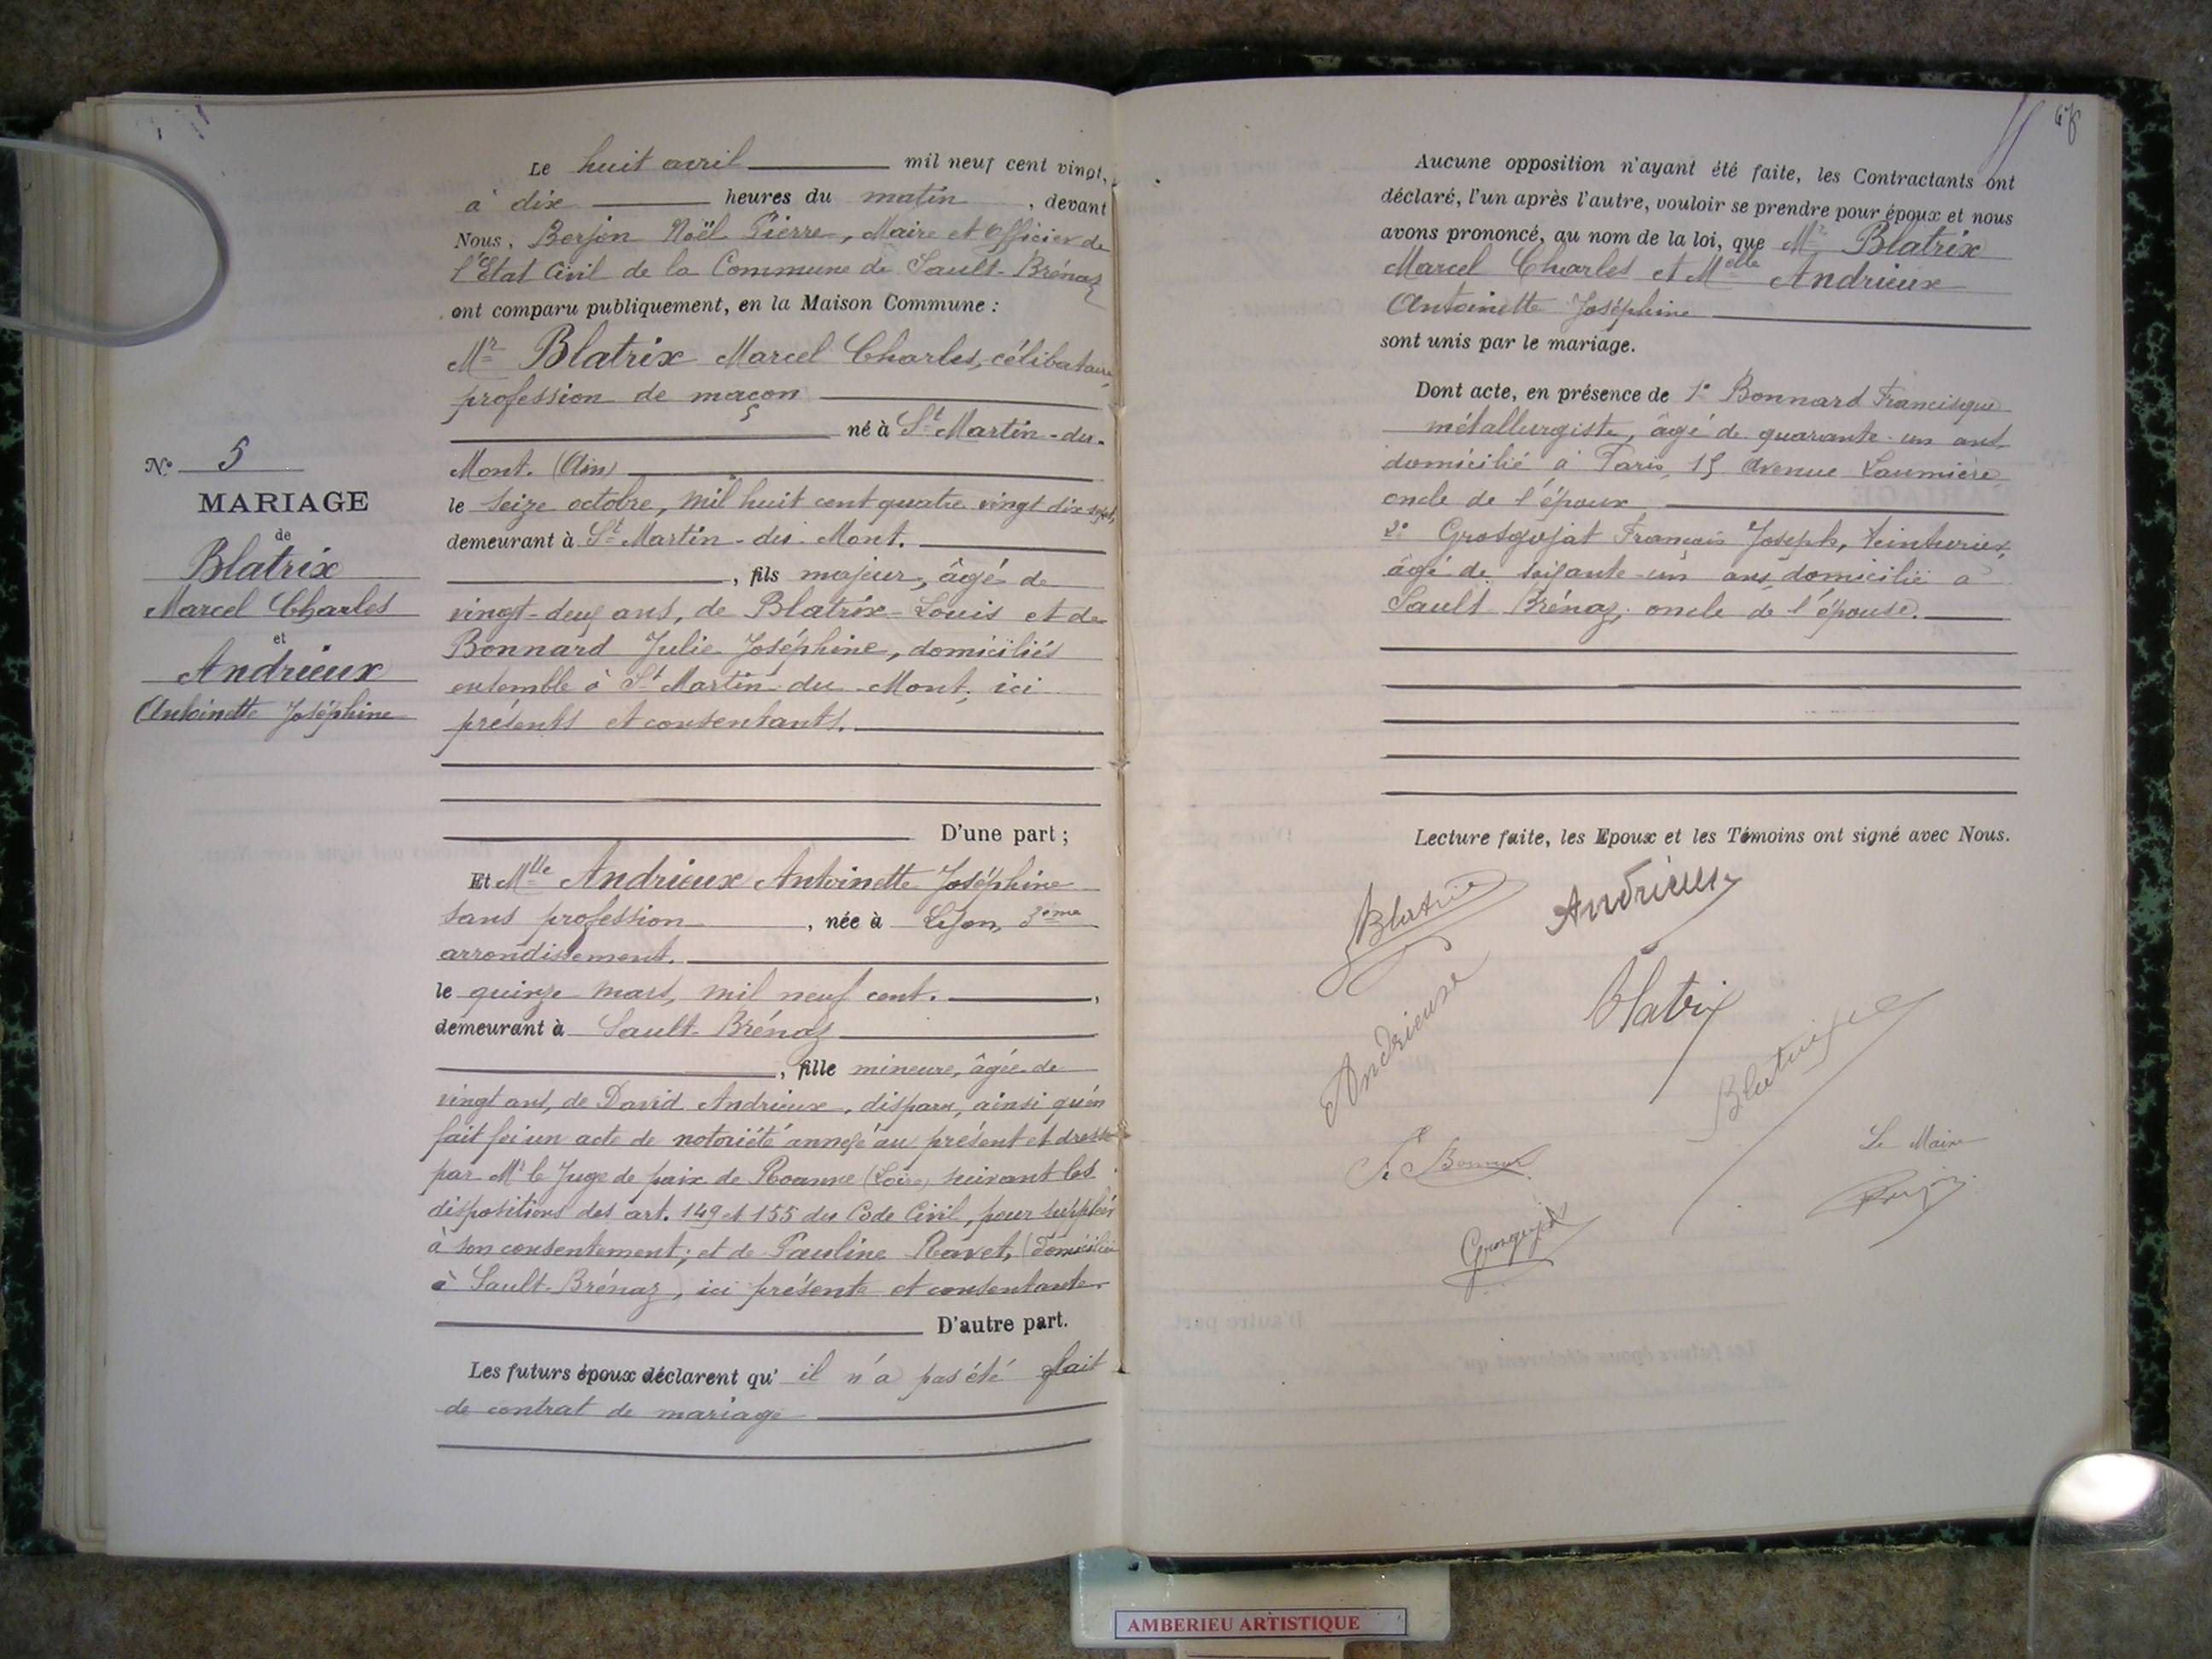 N° 5
MARIAGE
de
Blatrix
Marcel Charles
et
Andrieux
Antoinette Joséphine
Le huit avril mil neuf cent vingt,
à dix heures du matin, devant
Nous, Berjon Noël Pierre, Maire et Officier de
l'Etat Civil de la Commune de Sault-Brénaz
ont comparu publiquement, en la Maison Commune :
Mr Blatrix Marcel Charles, célibataire,
profession de maçon
né à St Martin-du-
Mont. (Ain)
le seize octobre, mil huit cent quatre vingt dix sept,
demeurant à St Martin-du-Mont.
, fils majeur, âgé de
vingt-deux ans, de Blatrix Louis et de
Bonnard Julie Joséphine, domiciliés
ensemble à St Martin-du-Mont, ici
présents et consentants.
D'une part ;
Et Mlle Andrieux Antoinette Joséphine
sans profession, née à Lyon, 3eme
arrondissement.
le quinze mars, mil neuf cent.,
demeurant à Sault-Brénaz
, fille mineure, âgée de
vingt ans, de David Andrieux, disparu, ainsi qu'en
fait foi un acte de notoriété annexé au présent et dressé
par Mr le Juge de paix de Roanne (Loire) suivant les
dispositions des art. 149 et 155 du Code Civil, pour suppléer
à son consentement; et de Pauline Ravet, domiciliée
à Sault-Brénaz, ici présente et consentante
D'autre part.
Les futurs époux déclarent qu'il n'a pas été fait
de contrat de mariage
Aucune opposition n'ayant été faite, les Contractants ont
déclaré, l'un après l'autre, vouloir se prendre pour époux et nous
avons prononcé, au nom de la loi, que Mr Blatrix
Marcel Charles et Melle Andrieux
Antoinette Joséphine
sont unis par le mariage.
Dont acte, en présence de 1° Bonnard Francisque
métallurgiste, âgé de quarante-un ans
domicilié à Paris, 15 Avenue Laumière
oncle de l'époux
2° Grosgojat François Joseph, teinturier,
âgé de soixante-un ans domicilié à
Sault Brénaz, oncle de l'épouse.
Lecture faite, les Epoux et les Témoins ont signé avec Nous.
Blatrix
Andrieux
Andrieux
Blatrix
Le Maire
Berjon
Grosgojat
AMBERIEU ARTISTIQUE